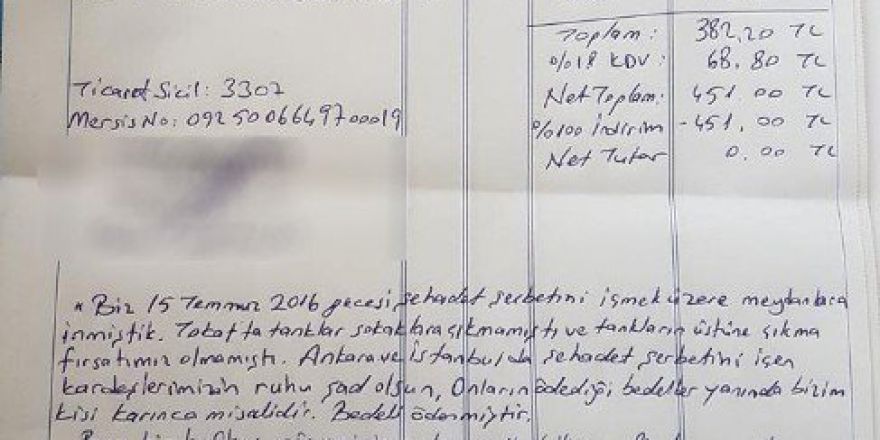 Toplam: 382,20 TL
%18 KDV: 68,80 TL
Ticaret Sicil: 3307
Net Toplam: 451,00 TL
Mersis No: 0925006649700019
%100 İndirim -451,00 TL
Net Tutar 0,00 TL
* Biz 15 Temmuz 2016 gecesi şehadet şerbetini içmek üzere meydanlara
inmiştik. Tokat'ta tanklar sokaklara çıkmamıştı ve tankların üstüne çıkma
fırsatımız olmamıştı. Ankara ve İstanbul'da şehadet şerbetini içen
kardeşlerimizin ruhu şad olsun, Onların ödediği bedeller yanında bizim
kisi karınca misalidir. Bedeli ödenmiştir.